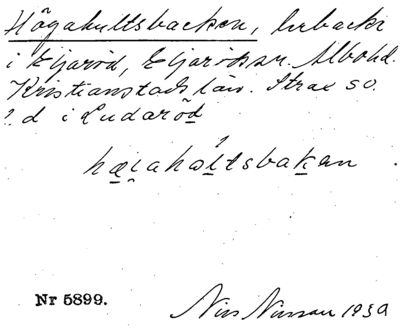 Högahultsbacken, lerbacke
i Eljaröd, Eljarödssn. Albohd.
Kristianstads län. Strax so.
d i Ludaröd
hæi̯ahǝltsbakan
Nr 5899.
Nils Nilsson 1930